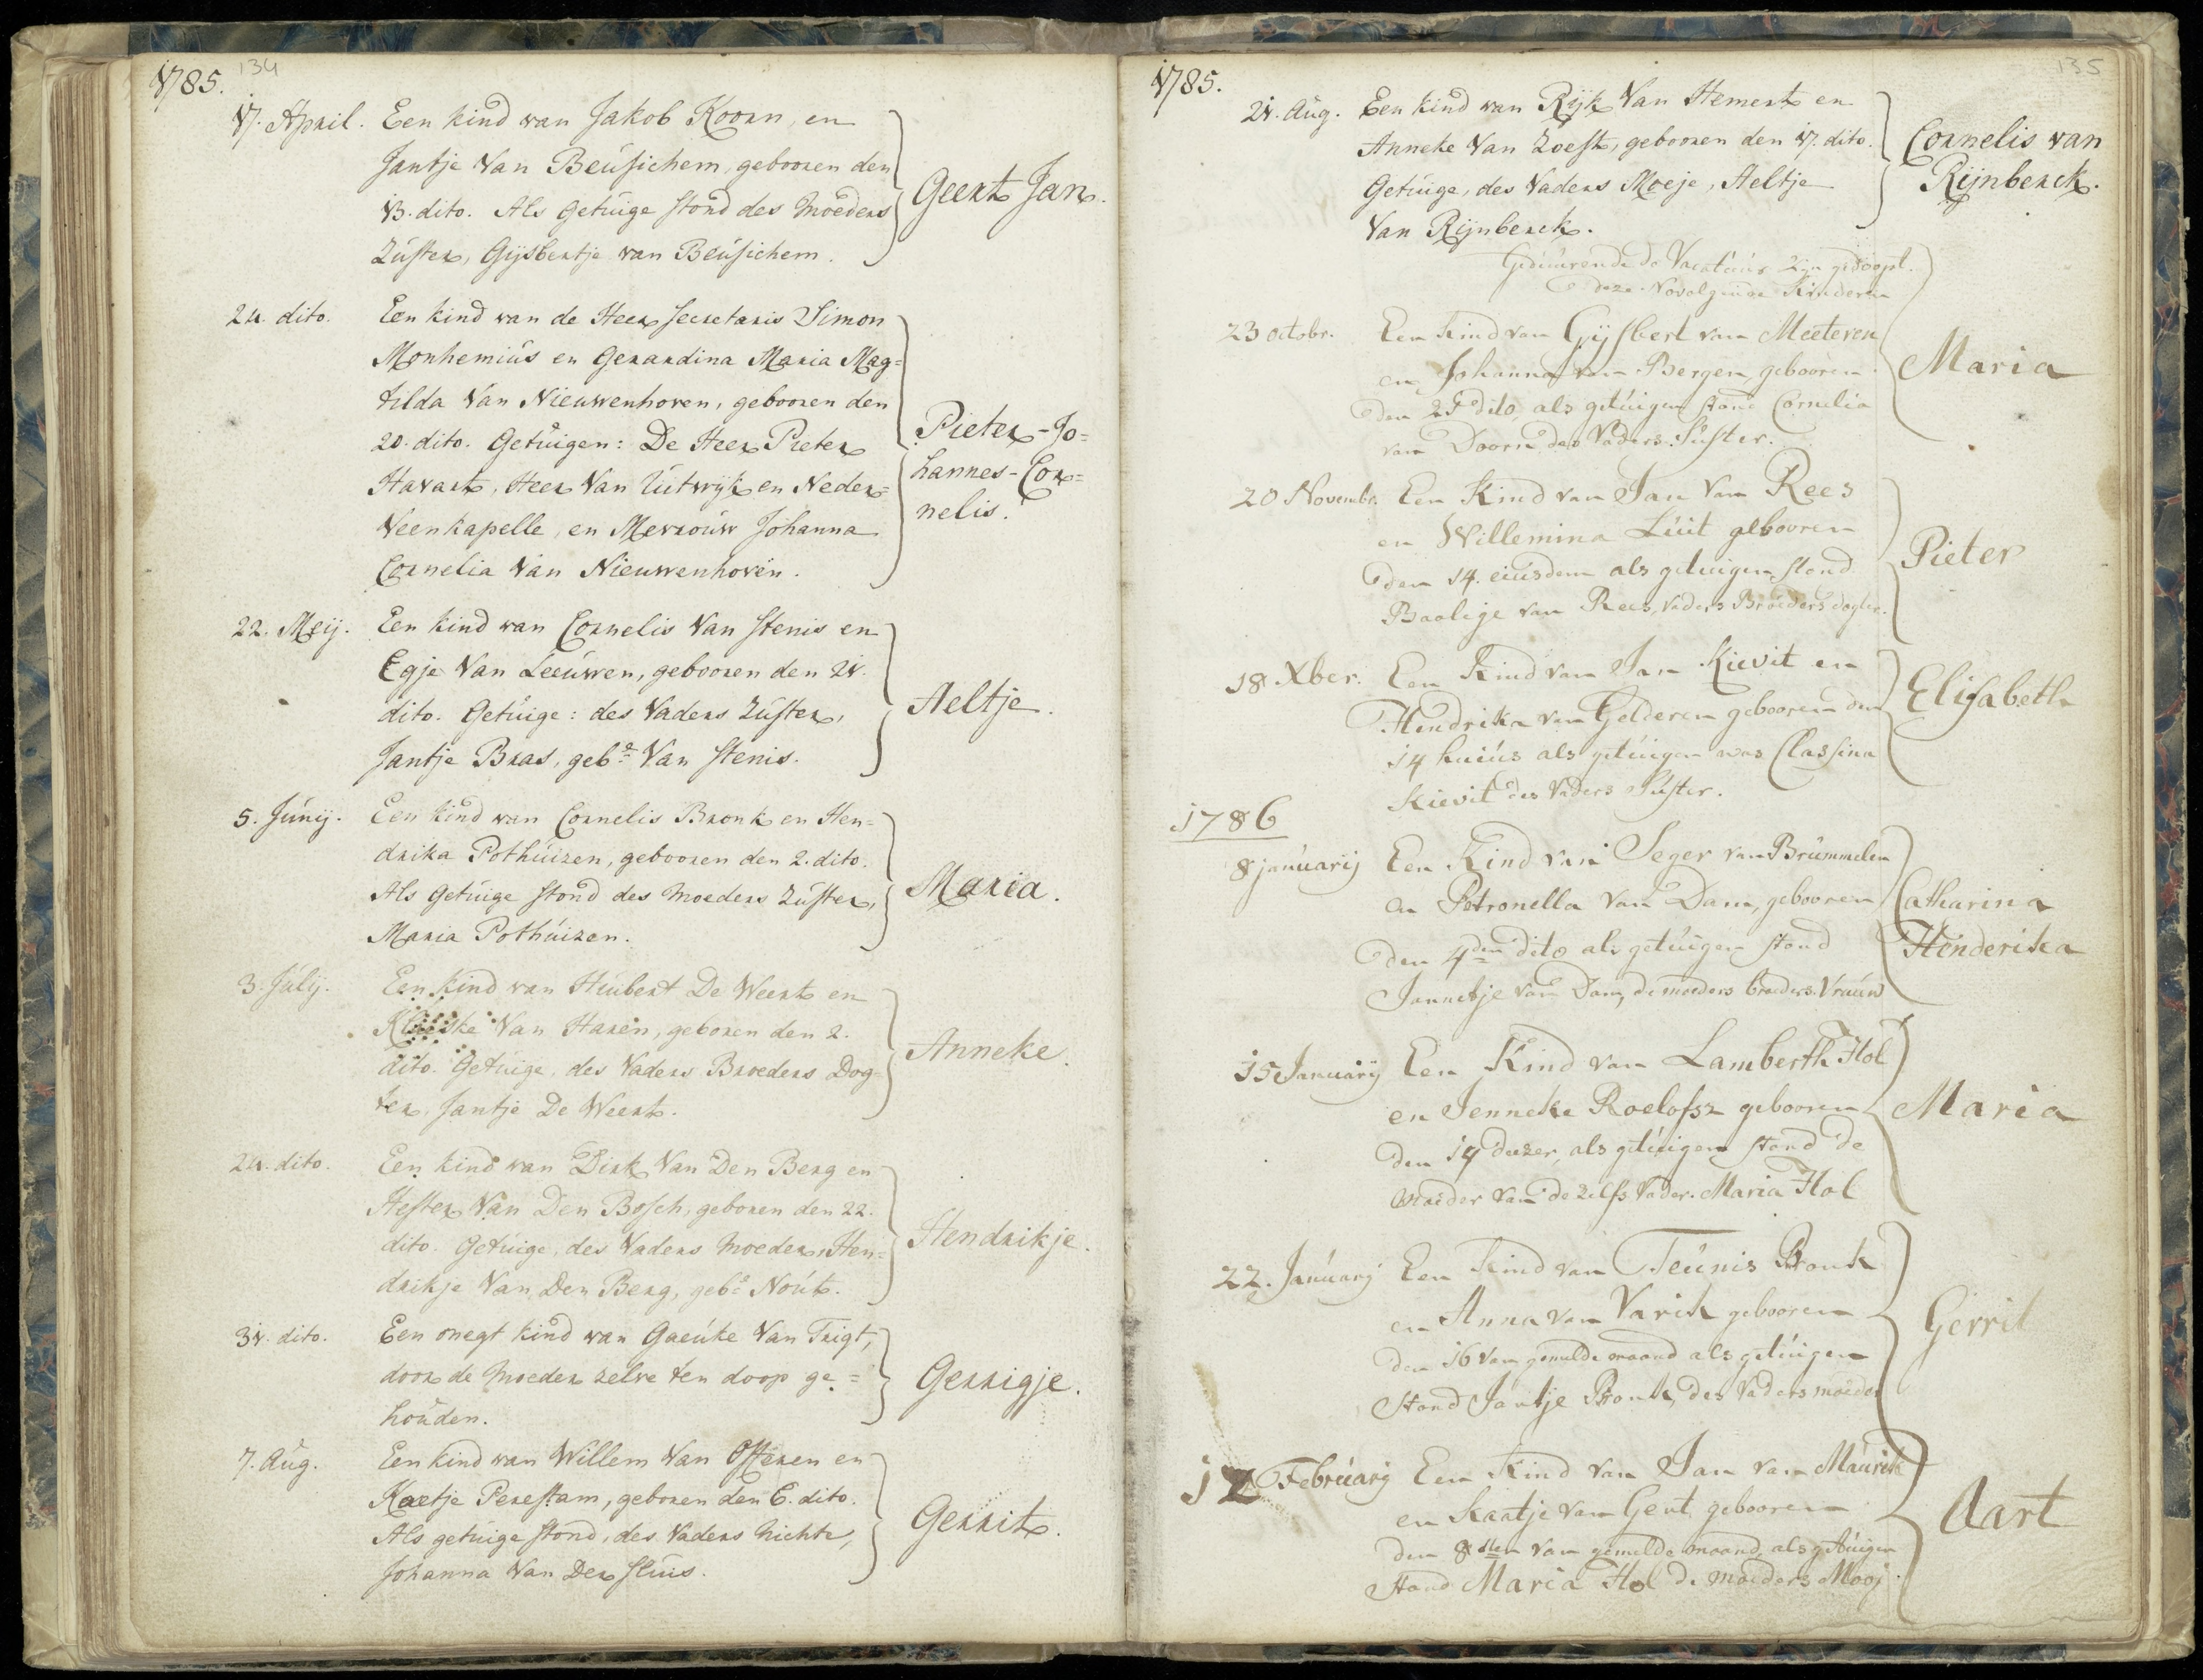 1785. 134
17. April. Een kind van Jakob Koorn, en
Jantje Van Beúsichem, geboren den
13. dito. Als getúige stond des Moeders
Zúster, Gijsbertje van Beúsichem.
Geert Jan.
24. dito. Een kind van de Heer Secretaris Simon
Monhemiús en Gerardina Maria Mag=
tilda Van Nieuwenhoven, geboren den
20. dito. Getúigen: De Heer Pieter
Havart, Heer Van Uútwijk en Neder=
Veenkapelle, en Mevroúw Johanna
Cornelia Van Nieuwenhoven.
Pieter-Jo=
hannes-Cor=
nelis.
22. Meij. Een kind van Cornelis Van Stenis en
Egje Van Leeúwen, geboren den 21.
dito. Getúige: des Vaders Zúster,
Jantje Bras, geb.e Van Stenis.
Aeltje.
5. Júnij. Een kind van Cornelis Bronk en Hen=
drika Pothúizen, geboren den 2. dito.
Als getúige stond des Moeders Zúster,
Maria Pothúizen.
Maria.
3. Júlij. Een kind van Húibert De Weert en
Van Haren, geboren den 2.
dito. Getúige, des Vaders Broeders Dog=
ter, Jantje De Weert.
Anneke.
24. dito. Een kind van Dirk Van Den Berg en
Hester Van Den Bosch, geboren den 22.
dito. Getúige, des Vaders Moeder, Hen=
drikje Van Den Berg, geb.e Noút.
Hendrikje.
31. dito. Een onegt kind van Gaeúke Van Trigt,
door de Moeder zelve ten doop ge=
hoúden.
Gerrigje.
7. Aúg. Een kind van Willem Van Osteren en
Kaetje Perestam, geboren den 6. dito.
Als getúige stond, des Vaders Nichte,
Johanna Van Der Slúis.
Gerrit.
1785. 135
21. Aúg. Een kind van Rijk Van Hemert en
Anneke Van Zoest, geboren den 17. dito.
Getúige, des Vaders Moeje, Aeltje
Van Rijnberck.
Cornelis van
Rijnberck.
Gedúúrende de Vacatúúr zijn gedoopt
deze Kinderen
23 octobr. Een Kind van Gijsbert van Meeteren
en Johanna van Bergen, gebooren
den dito, als getúigen stond Cornelia
van Doorn des Vaders Súster.
Maria
20 Novembr. Een Kind van Jan van Rees
en Willemina Lúit gebooren
den 14. eiúsdem als getuigen stond
Baaligje van Rees, Vaders Broeders dogter.
Pieter
18 Xber. Een Kind van Jan Kievit en
Hendrika van Gelderen gebooren den
14 huiús als getúigen was Classina
Kievit des Vaders Súster.
Elisabeth
1786
8 janúarij Een Kind van Seger van Brúmmelen
en Petronella van Dam, gebooren
den 4den dito als getúigen stond
Jannetje van Dam, de moeders broeders Vroúw
Catharina
Henderika
15 Januarij Een Kind van Lamberth Hol
en Jenneke Roelofsz gebooren
den 14 dezer, als getúigen stond de
moeder van de zelfs Vader. Maria Hol
Maria
22. Janúarij Een Kind van Teúnis Bronk
en Anna van Varik gebooren
den 16 van gemelde maand als getúigen
stond Jantje Bronk, des Vaders moeder
Gerrit
12 Febrúarij Een Kind van Jan van Maúrik
en Kaatje van Gent gebooren
den 8sten van gemelde maand, als getúigen
stond Maria Hol de moeders Mooj
Aart